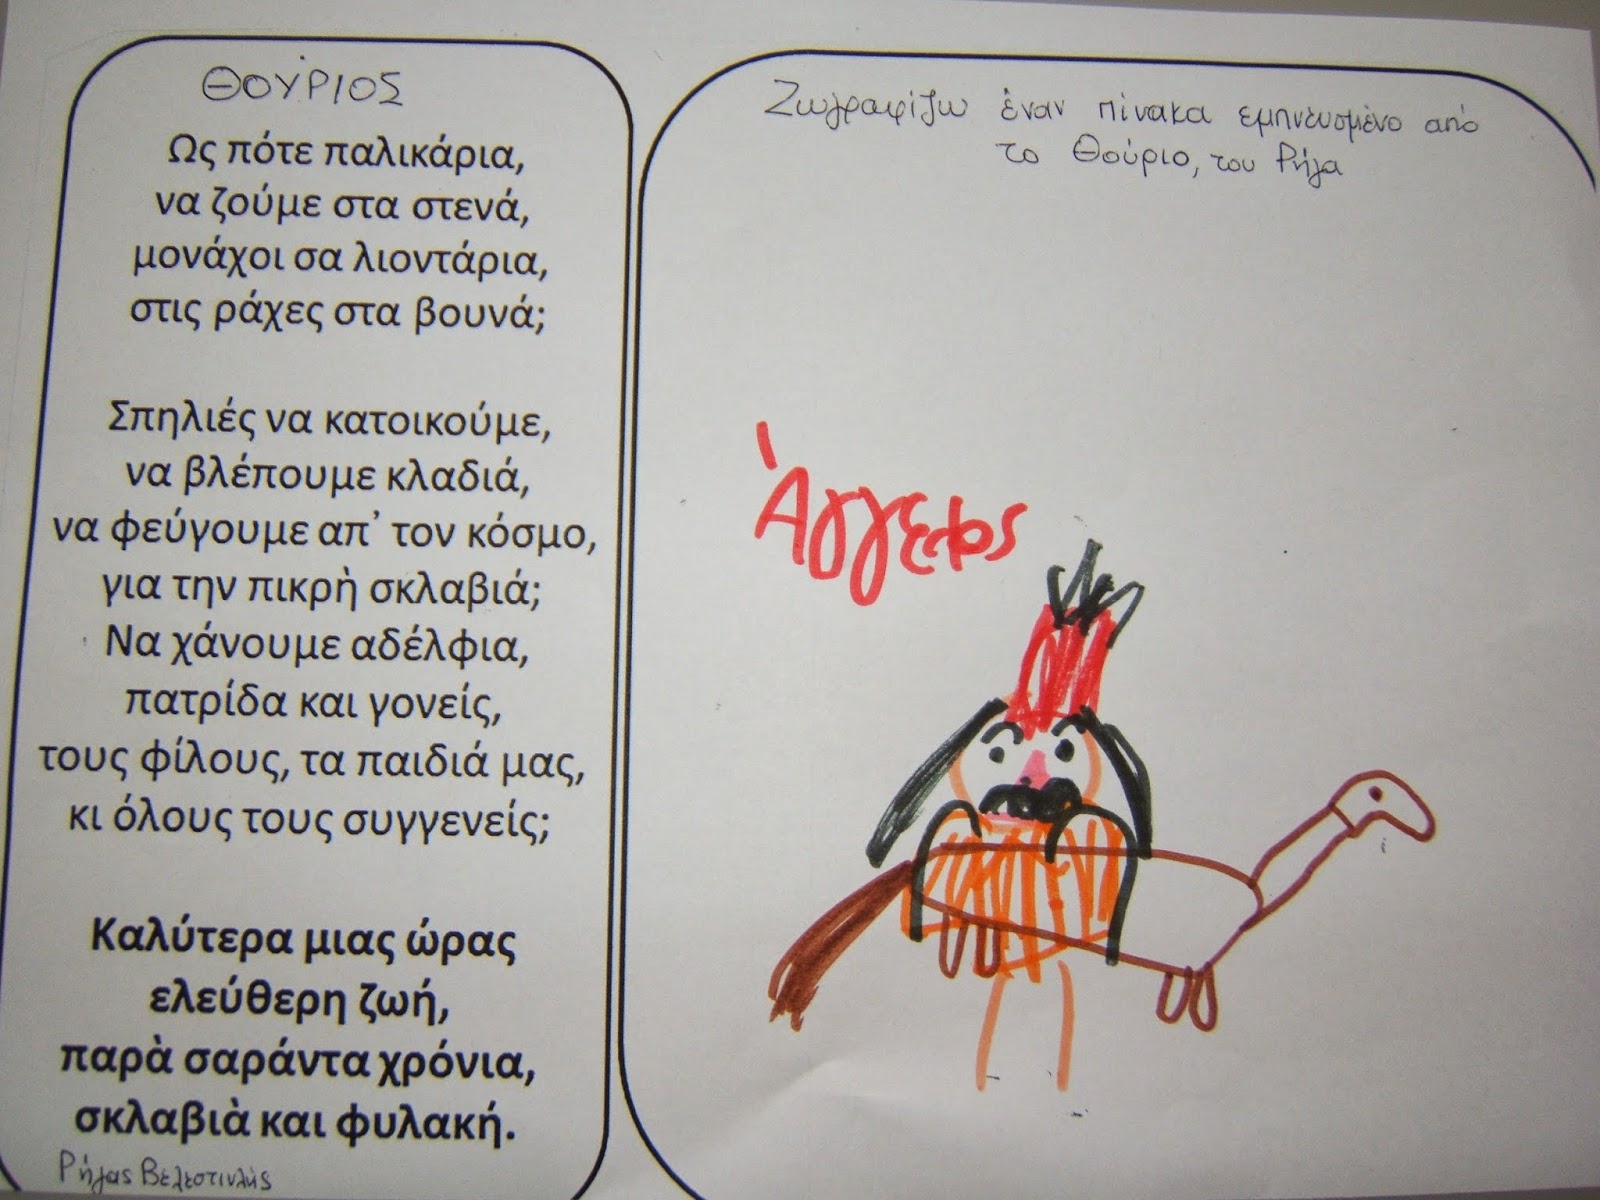 ΘΟΎΡΙΟΣ
Ως πότε παλικάρια,
να ζούμε στα στενά,
μονάχοι σα λιοντάρια,
στις ράχες στα βουνά;
Σπηλιές να κατοικούμε,
να βλέπουμε κλαδιά,
να φεύγουμε απ’ τον κόσμο,
για την πικρὴ σκλαβιά;
Να χάνουμε αδέλφια,
πατρίδα και γονείς,
τους φίλους, τα παιδιά μας,
κι όλους τους συγγενείς;
Καλύτερα μιας ώρας
ελεύθερη ζωή,
παρὰ σαράντα χρόνια,
σκλαβιὰ και φυλακή.
Ρήγας Βελεστινλής
Ζωγραφίζω έναν πίνακα εμπνευσμένο από
το Θούριο, του Ρήγα
Άγγελος